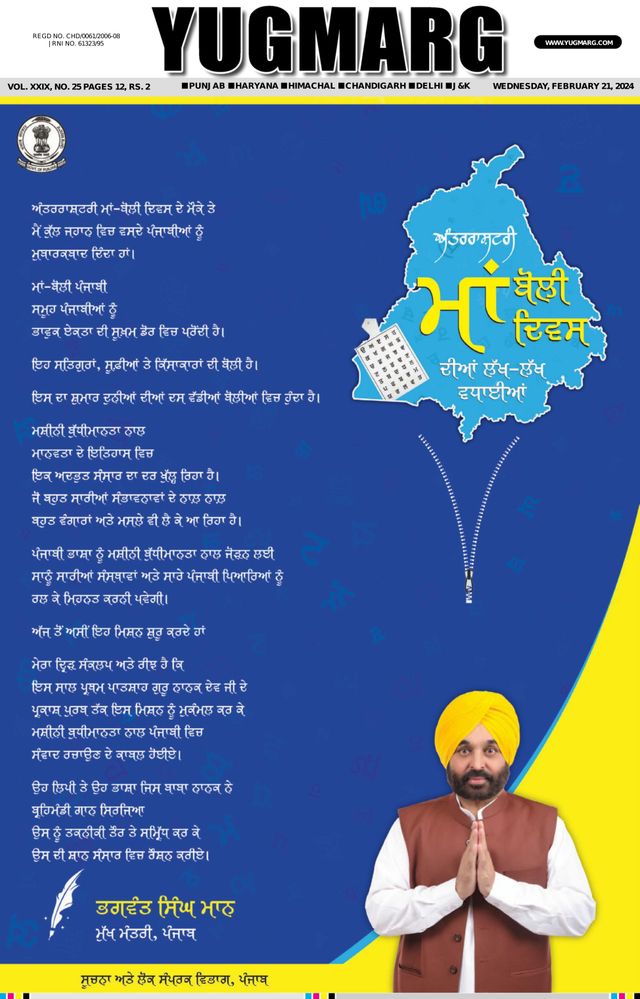 REGD NO. CHD/0061/2006-08
| RNI NO. 61323/95
YUGMARG
WWW.YUGMARG.COM
VOL. XXIX, NO. 25 PAGES 12, RS. 2
■PUNJAB ■HARYANA ■HIMACHAL ■CHANDIGARH ■DELHI ■J &K
WEDNESDAY, FEBRUARY 21, 2024
ਅੰਤਰਰਾਸ਼ਟਰੀ ਮਾਂ-ਬੋਲੀ ਦਿਵਸ ਦੇ ਮੌਕੇ ਤੇ
ਮੈਂ ਕੁੱਲ ਜਹਾਨ ਵਿਚ ਵਸਦੇ ਪੰਜਾਬੀਆਂ ਨੂੰ
ਮੁਬਾਰਕਬਾਦ ਦਿੰਦਾ ਹਾਂ।
ਮਾਂ-ਬੋਲੀ ਪੰਜਾਬੀ
ਸਮੂਹ ਪੰਜਾਬੀਆਂ ਨੂੰ
ਭਾਵੁਕ ਏਕਤਾ ਦੀ ਸੂਖ਼ਮ ਡੋਰ ਵਿਚ ਪਰੋਂਦੀ ਹੈ।
ਇਹ ਸਤਿਗੁਰਾਂ, ਸੂਫ਼ੀਆਂ ਤੇ ਕਿੱਸਾਕਾਰਾਂ ਦੀ ਬੋਲੀ ਹੈ।
ਇਸ ਦਾ ਸ਼ੁਮਾਰ ਦੁਨੀਆਂ ਦੀਆਂ ਦਸ ਵੱਡੀਆਂ ਬੋਲੀਆਂ ਵਿਚ ਹੁੰਦਾ ਹੈ।
ਮਸ਼ੀਨੀ ਬੁੱਧੀਮਾਨਤਾ ਨਾਲ
ਮਾਨਵਤਾ ਦੇ ਇਤਿਹਾਸ ਵਿਚ
ਇਕ ਅਦਭੁਤ ਸੰਸਾਰ ਦਾ ਦਰ ਖੁੱਲ੍ਹ ਰਿਹਾ ਹੈ।
ਜੋ ਬਹੁਤ ਸਾਰੀਆਂ ਸੰਭਾਵਨਾਵਾਂ ਦੇ ਨਾਲ਼ ਨਾਲ਼
ਬਹੁਤ ਵੰਗਾਰਾਂ ਅਤੇ ਮਸਲੇ ਵੀ ਲੈ ਕੇ ਆ ਰਿਹਾ ਹੈ।
ਪੰਜਾਬੀ ਭਾਸ਼ਾ ਨੂੰ ਮਸ਼ੀਨੀ ਬੁੱਧੀਮਾਨਤਾ ਨਾਲ ਜੋੜਨ ਲਈ
ਸਾਨੂੰ ਸਾਰੀਆਂ ਸੰਸਥਾਵਾਂ ਅਤੇ ਸਾਰੇ ਪੰਜਾਬੀ ਪਿਆਰਿਆਂ ਨੂੰ
ਰਲ ਕੇ ਮਿਹਨਤ ਕਰਨੀ ਪਵੇਗੀ।
ਅੱਜ ਤੋਂ ਅਸੀਂ ਇਹ ਮਿਸ਼ਨ ਸ਼ੁਰੂ ਕਰਦੇ ਹਾਂ
ਮੇਰਾ ਦ੍ਰਿੜ੍ਹ ਸੰਕਲਪ ਅਤੇ ਰੀਝ ਹੈ ਕਿ
ਇਸ ਸਾਲ ਪ੍ਰਥਮ ਪਾਤਸ਼ਾਹ ਗੁਰੂ ਨਾਨਕ ਦੇਵ ਜੀ ਦੇ
ਪ੍ਰਕਾਸ਼ ਪੁਰਬ ਤੱਕ ਇਸ ਮਿਸ਼ਨ ਨੂੰ ਮੁਕੰਮਲ ਕਰ ਕੇ
ਮਸ਼ੀਨੀ ਬੁਧੀਮਾਨਤਾ ਨਾਲ ਪੰਜਾਬੀ ਵਿਚ
ਸੰਵਾਦ ਰਚਾਉਣ ਦੇ ਕਾਬਲ ਹੋਈਏ।
ਉਹ ਲਿਪੀ ਤੇ ਉਹ ਭਾਸ਼ਾ ਜਿਸ ਬਾਬਾ ਨਾਨਕ ਨੇ
ਬ੍ਰਹਿਮੰਡੀ ਗਾਨ ਸਿਰਜਿਆ
ਉਸ ਨੂੰ ਤਕਨੀਕੀ ਤੌਰ ਤੇ ਸਮ੍ਰਿੱਧ ਕਰ ਕੇ
ਉਸ ਦੀ ਸ਼ਾਨ ਸੰਸਾਰ ਵਿਚ ਰੌਸ਼ਨ ਕਰੀਏ।
ਭਗਵੰਤ ਸਿੰਘ ਮਾਨ
ਮੁੱਖ ਮੰਤਰੀ, ਪੰਜਾਬ
ਅੰਤਰਰਾਸ਼ਟਰੀ
ਮਾਂ ਬੋਲੀ
ਦਿਵਸ
ਦੀਆਂ ਲੱਖ-ਲੱਖ
ਵਧਾਈਆਂ
ਸੂਚਨਾ ਅਤੇ ਲੋਕ ਸੰਪਰਕ ਵਿਭਾਗ, ਪੰਜਾਬ